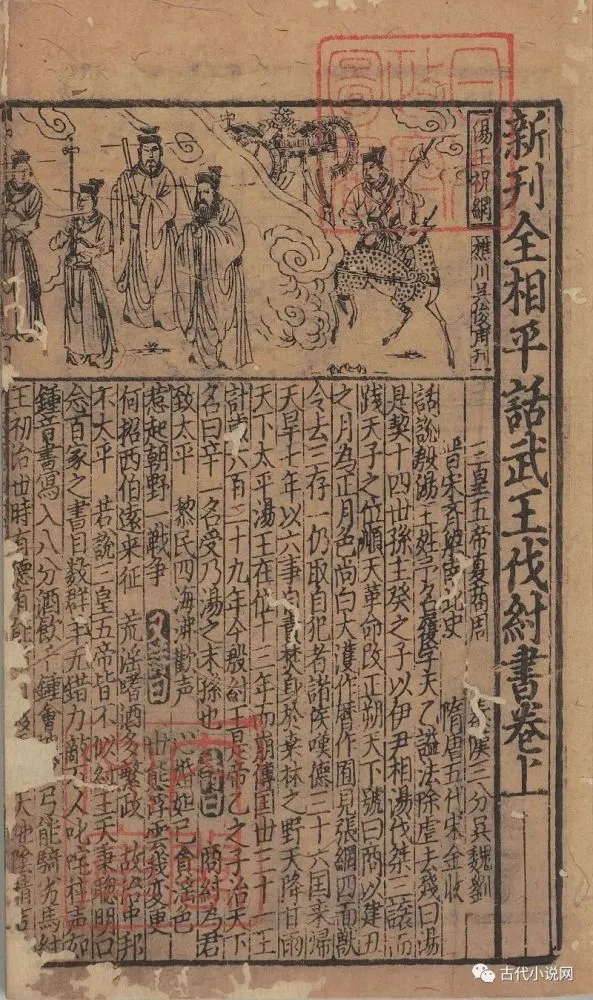 新刊全相平話武王伐紂書卷上
湯王祝網
樵川吳俊甫刊
三皇五帝夏商周 三分吳魏劉
晉宋齊梁南北史 隋唐五代宋金收
話說殷湯王姓子名履字天乙謚法除虐去殘曰湯
是契十四世孫主癸之子以伊尹相湯伐桀三讓而
踐天子之位順天革命改正朔天下號曰商以建丑
之月為正月色尚白大濩作曆作囿見張網四面歎
令去三存一仍取自犯者諸侯嘆德三十六囯来歸
天旱七年以六事自責焚身於桑林之野天降甘雨
天下太平湯王在位十三年而崩傳王丗三十一王
計歲六百二十九年今殷紂王是帝乙之子治天下
名曰辛一名受乃湯之末孫也 詩曰 商紂為君
致太平 黎民四海沸歡声 妲己貪淫色
惹起朝野一戰争 又詩曰 世態浮雲幾變更
何招西伯遠来征 荒淫嗜酒多繁政 故治中邦
不太平 若說三皇五帝皆不以紂王天秉聰明口
念百家之書目數群羊无錯力敵万人叱咤柱声如
鍾音書寫入八分酒飲千鍾會 弓能騎劣馬紂
王初治世時有德有能
日本政府圖書
古代小说网